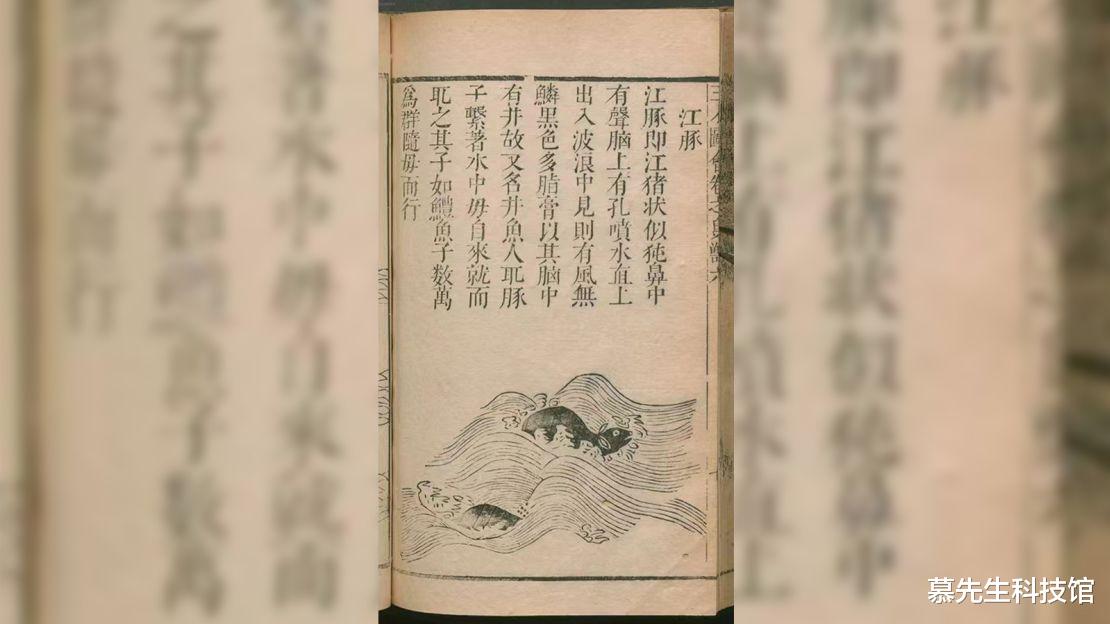 江豚
江豚即江猪状似㹠鼻中
有聲腦上有孔噴水直上
出入波浪中見則有風無
鱗黑色多脂膏以其腦中
有井故又名井魚人取豚
子繫著水中母自來就而
取之其子如鱧魚子数萬
為群隨母而行
慕先生科技馆